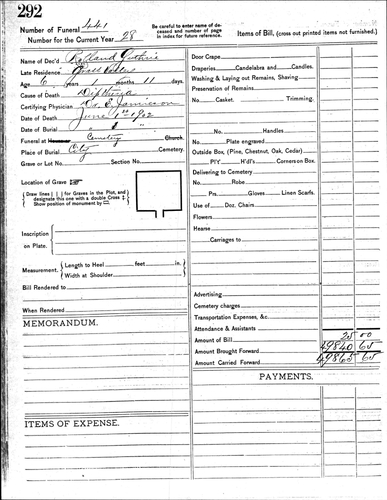 292
Number of Funeral 441
Number for the Current Year 28
Be careful to enter name of deceased and number of page in index for future reference.
Items of Bill, (cross out printed items not furnished.)
Name of Dec'd Rolland Guthrie
Late Residence Grass Valley
Age 6 years 1 months 11 days.
Cause of Death Diptheria
Certifying Physician Dr. E. Jamieson
Date of Death June 1st 1902
Date of Burial " "
Funeral at House Cemetery Church.
Place of Burial City Cemetery.
Grave or Lot No. Section No.
Location of Grave
Draw lines for Graves in the Plot, and designate this one with a double Cross
Show position of monument by
Inscription on Plate.
Measurement, Length to Heel feet in.
Width at Shoulder
Bill Rendered to
When Rendered
MEMORANDUM.
ITEMS OF EXPENSE.
Door Crape
Draperies Candelabra and Candles.
Washing & Laying out Remains, Shaving
Preservation of Remains
No. Casket. Trimming.
No. Handles
Plate engraved
Outside Box, (Pine, Chestnut, Oak, Cedar)
Pl'Y H'd'l's Corners on Box.
Delivering to Cemetery
No. Robe
Prs. Gloves Linen Scarfs.
Use of Doz. Chairs
Flowers
Hearse
Carriages to
Advertising
Cemetery charges
Transportation Expenses, &c.
Attendance & Assistants
Amount of Bill 25 00
Amount Brought Forward 49840 65
Amount Carried Forward 49865 65
PAYMENTS.